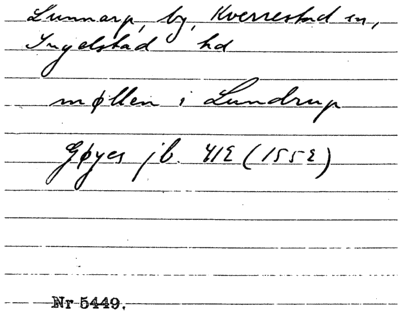 Lunnarp, by, Kverrestad sn,
Ingelstad hd
møllen i Lundrup
Gøyes jb. 412 (1552)
Nr 5449.